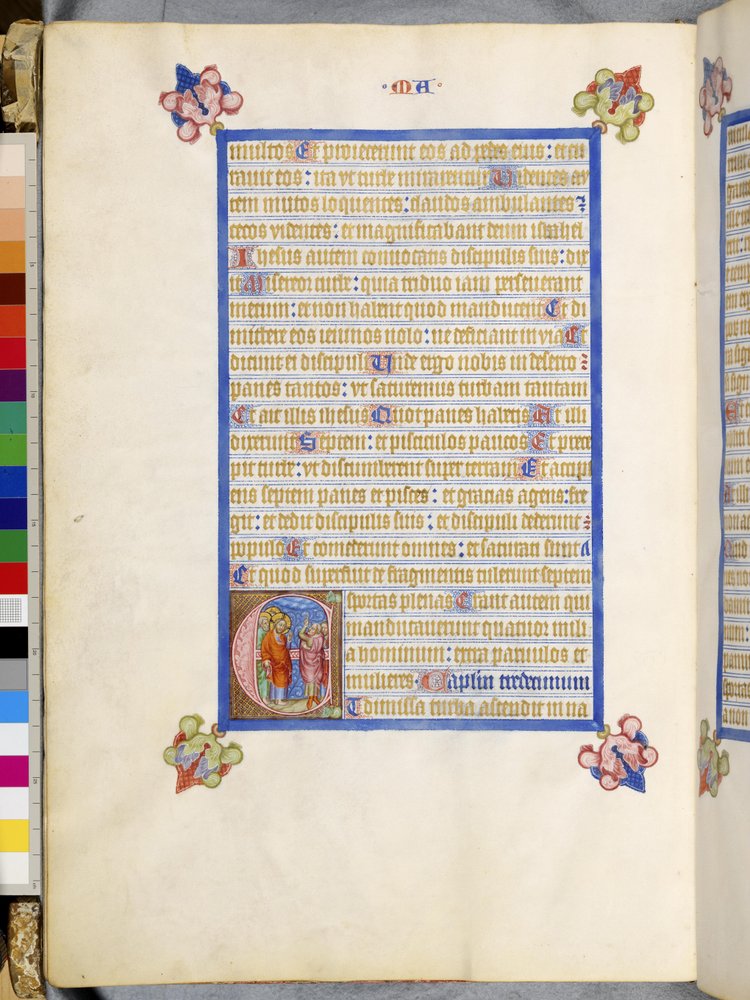 MA
multos Et proiecerunt eos ad pedes eius : et cu
rauit eos : ita vt turbe mirarentur Videntes au
tem mutos loquentes : claudos ambulantes :
cecos videntes : et magnificabant deum israhel
Ihesus autem conuocatis discipulis suis : dix
it Misereor turbe : quia triduo iam perseuerant
mecum : et non habent quod manducent Et di
mittere eos ieiunos nolo : ne deficiant in via Et
dicunt ei discipuli Vnde ergo nobis in deserto
panes tantos : vt saturemus turbam tantam
Et ait illis ihesus Quot panes habetis At illi
dixerunt Septem : et pisciculos paucos Et prece
pit turbe : vt discumberent super terram Et accipi
ens septem panes et pisces : et gracias agens : fre
git : et dedit discipulis suis : et discipuli dederunt
populo Et comederunt omnes : et saturati sunt
Et quod superfuit de fragmentis tulerunt septem
sportas plenas Erant autem qui
manducauerunt quatuor mili
a hominum : extra paruulos et
mulieres Caplm tredecimum
Et dimissa turba ascendit in na